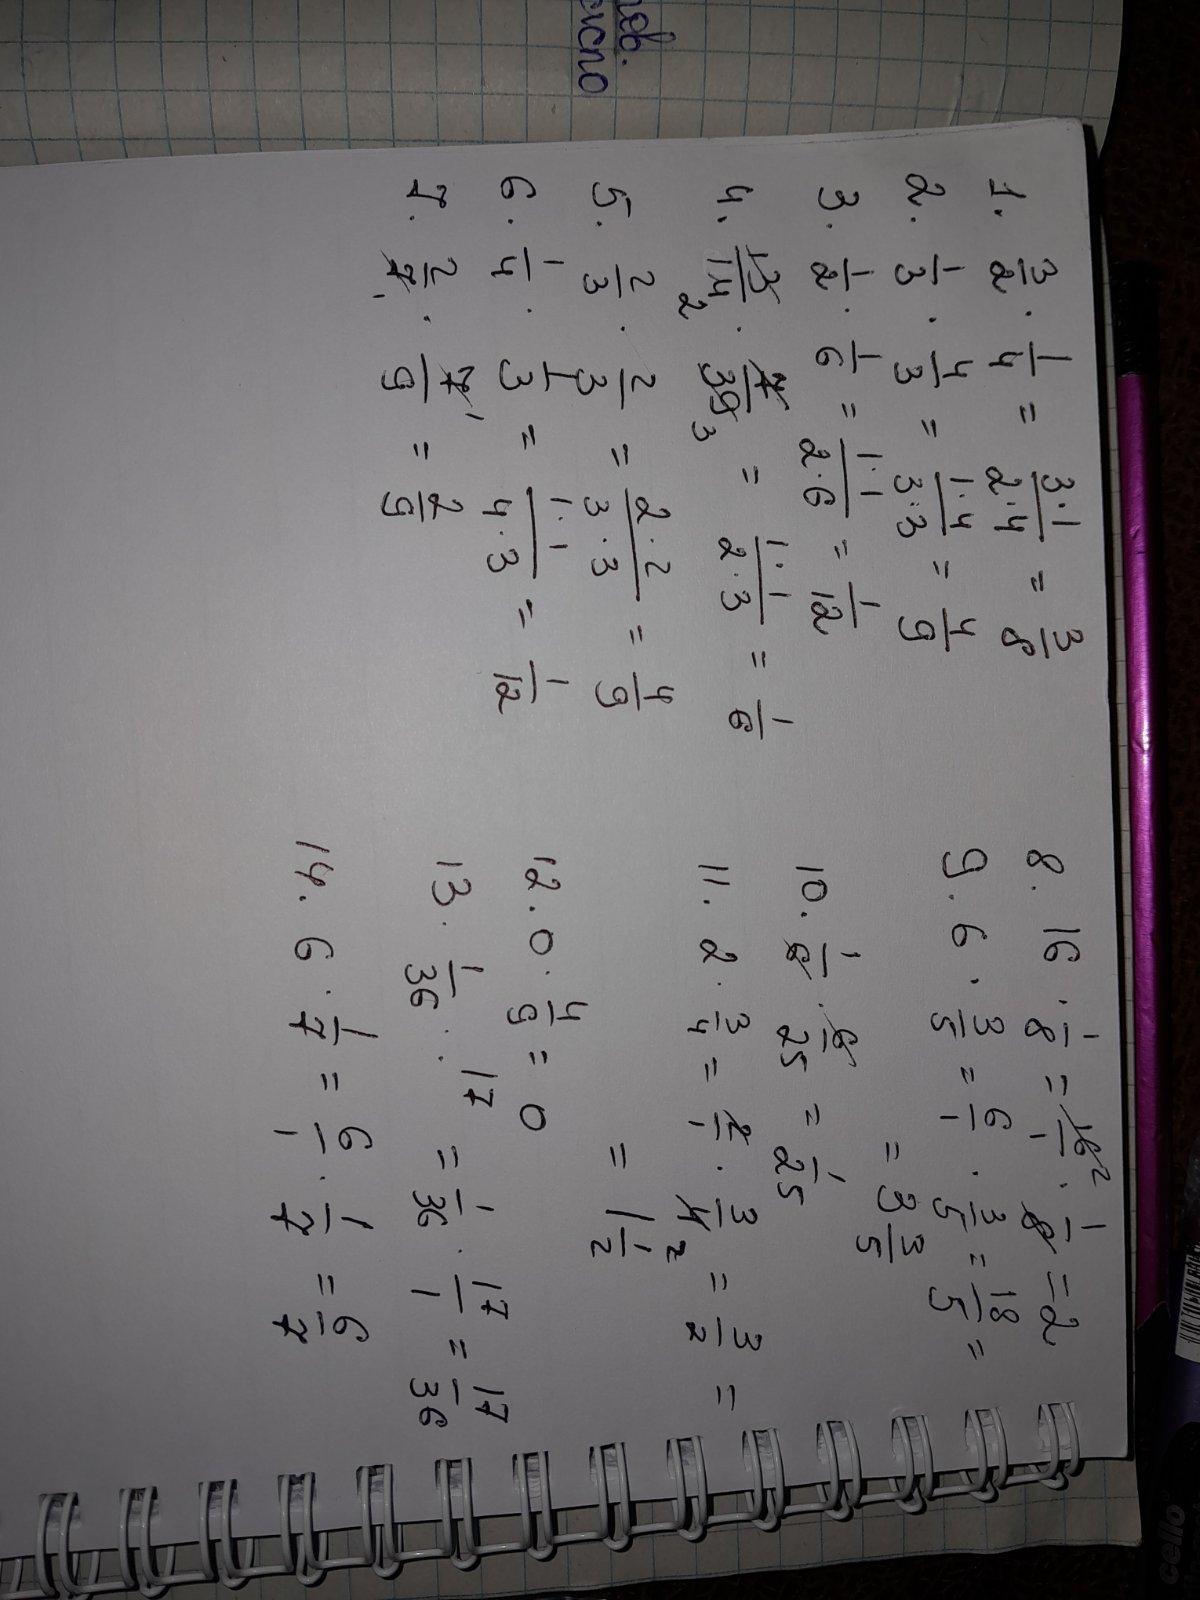 нов.
число
1. 3/2 · 1/4 = 3·1/2·4 = 3/8
2. 1/3 · 4/3 = 1·4/3·3 = 4/9
3. 1/2 · 1/6 = 1·1/2·6 = 1/12
4. 13/14 2 · 7/39 3 = 1·1/2·3 = 1/6
5. 2/3 · 2/3 = 2·2/3·3 = 4/9
6. 1/4 · 1/3 = 1·1/4·3 = 1/12
7. 2/7 1 · 7 1/9 = 2/9
8. 16 · 1/8 = 16 2/1 · 1/8 = 2
9. 6 · 3/5 = 6/1 · 3/5 = 18/5 =
= 3 3/5
10. 1/6 · 6/25 = 1/25
11. 2 · 3/4 = 2/1 · 3/4 2 = 3/2 =
= 1 1/2
12. 0 · 4/9 = 0
13. 1/36 · 17 = 1/36 · 17/1 = 17/36
14. 6 · 1/7 = 6/1 · 1/7 = 6/7
cello